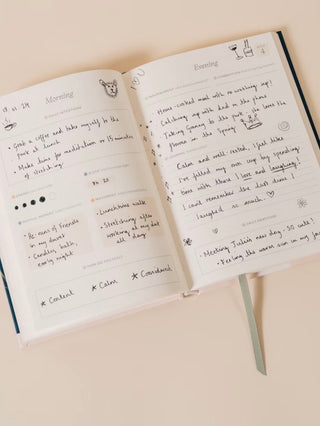 Morning
Grab a coffee and take myself to the
park at lunch
Make time for meditation or 15 minutes
of stretching
Re-runs of Friends
in my duvet
Candles, bath,
early night
Lunchtime walk
Stretching after
working at my desk
all day
* Content * Calm * Considered
Evening
4
Home-cooked meal with no washing up!
Catching up with dad on the phone
Taking Granny to the park - she loves the
blooms in the Spring
Calm and well-rested, I feel like
I've filled my own cup by spending
time with those I love and laughing!
I could remember the last time I
laughed so much.
Meeting Julia's new dog - so cute!
Feeling the warm sun in my